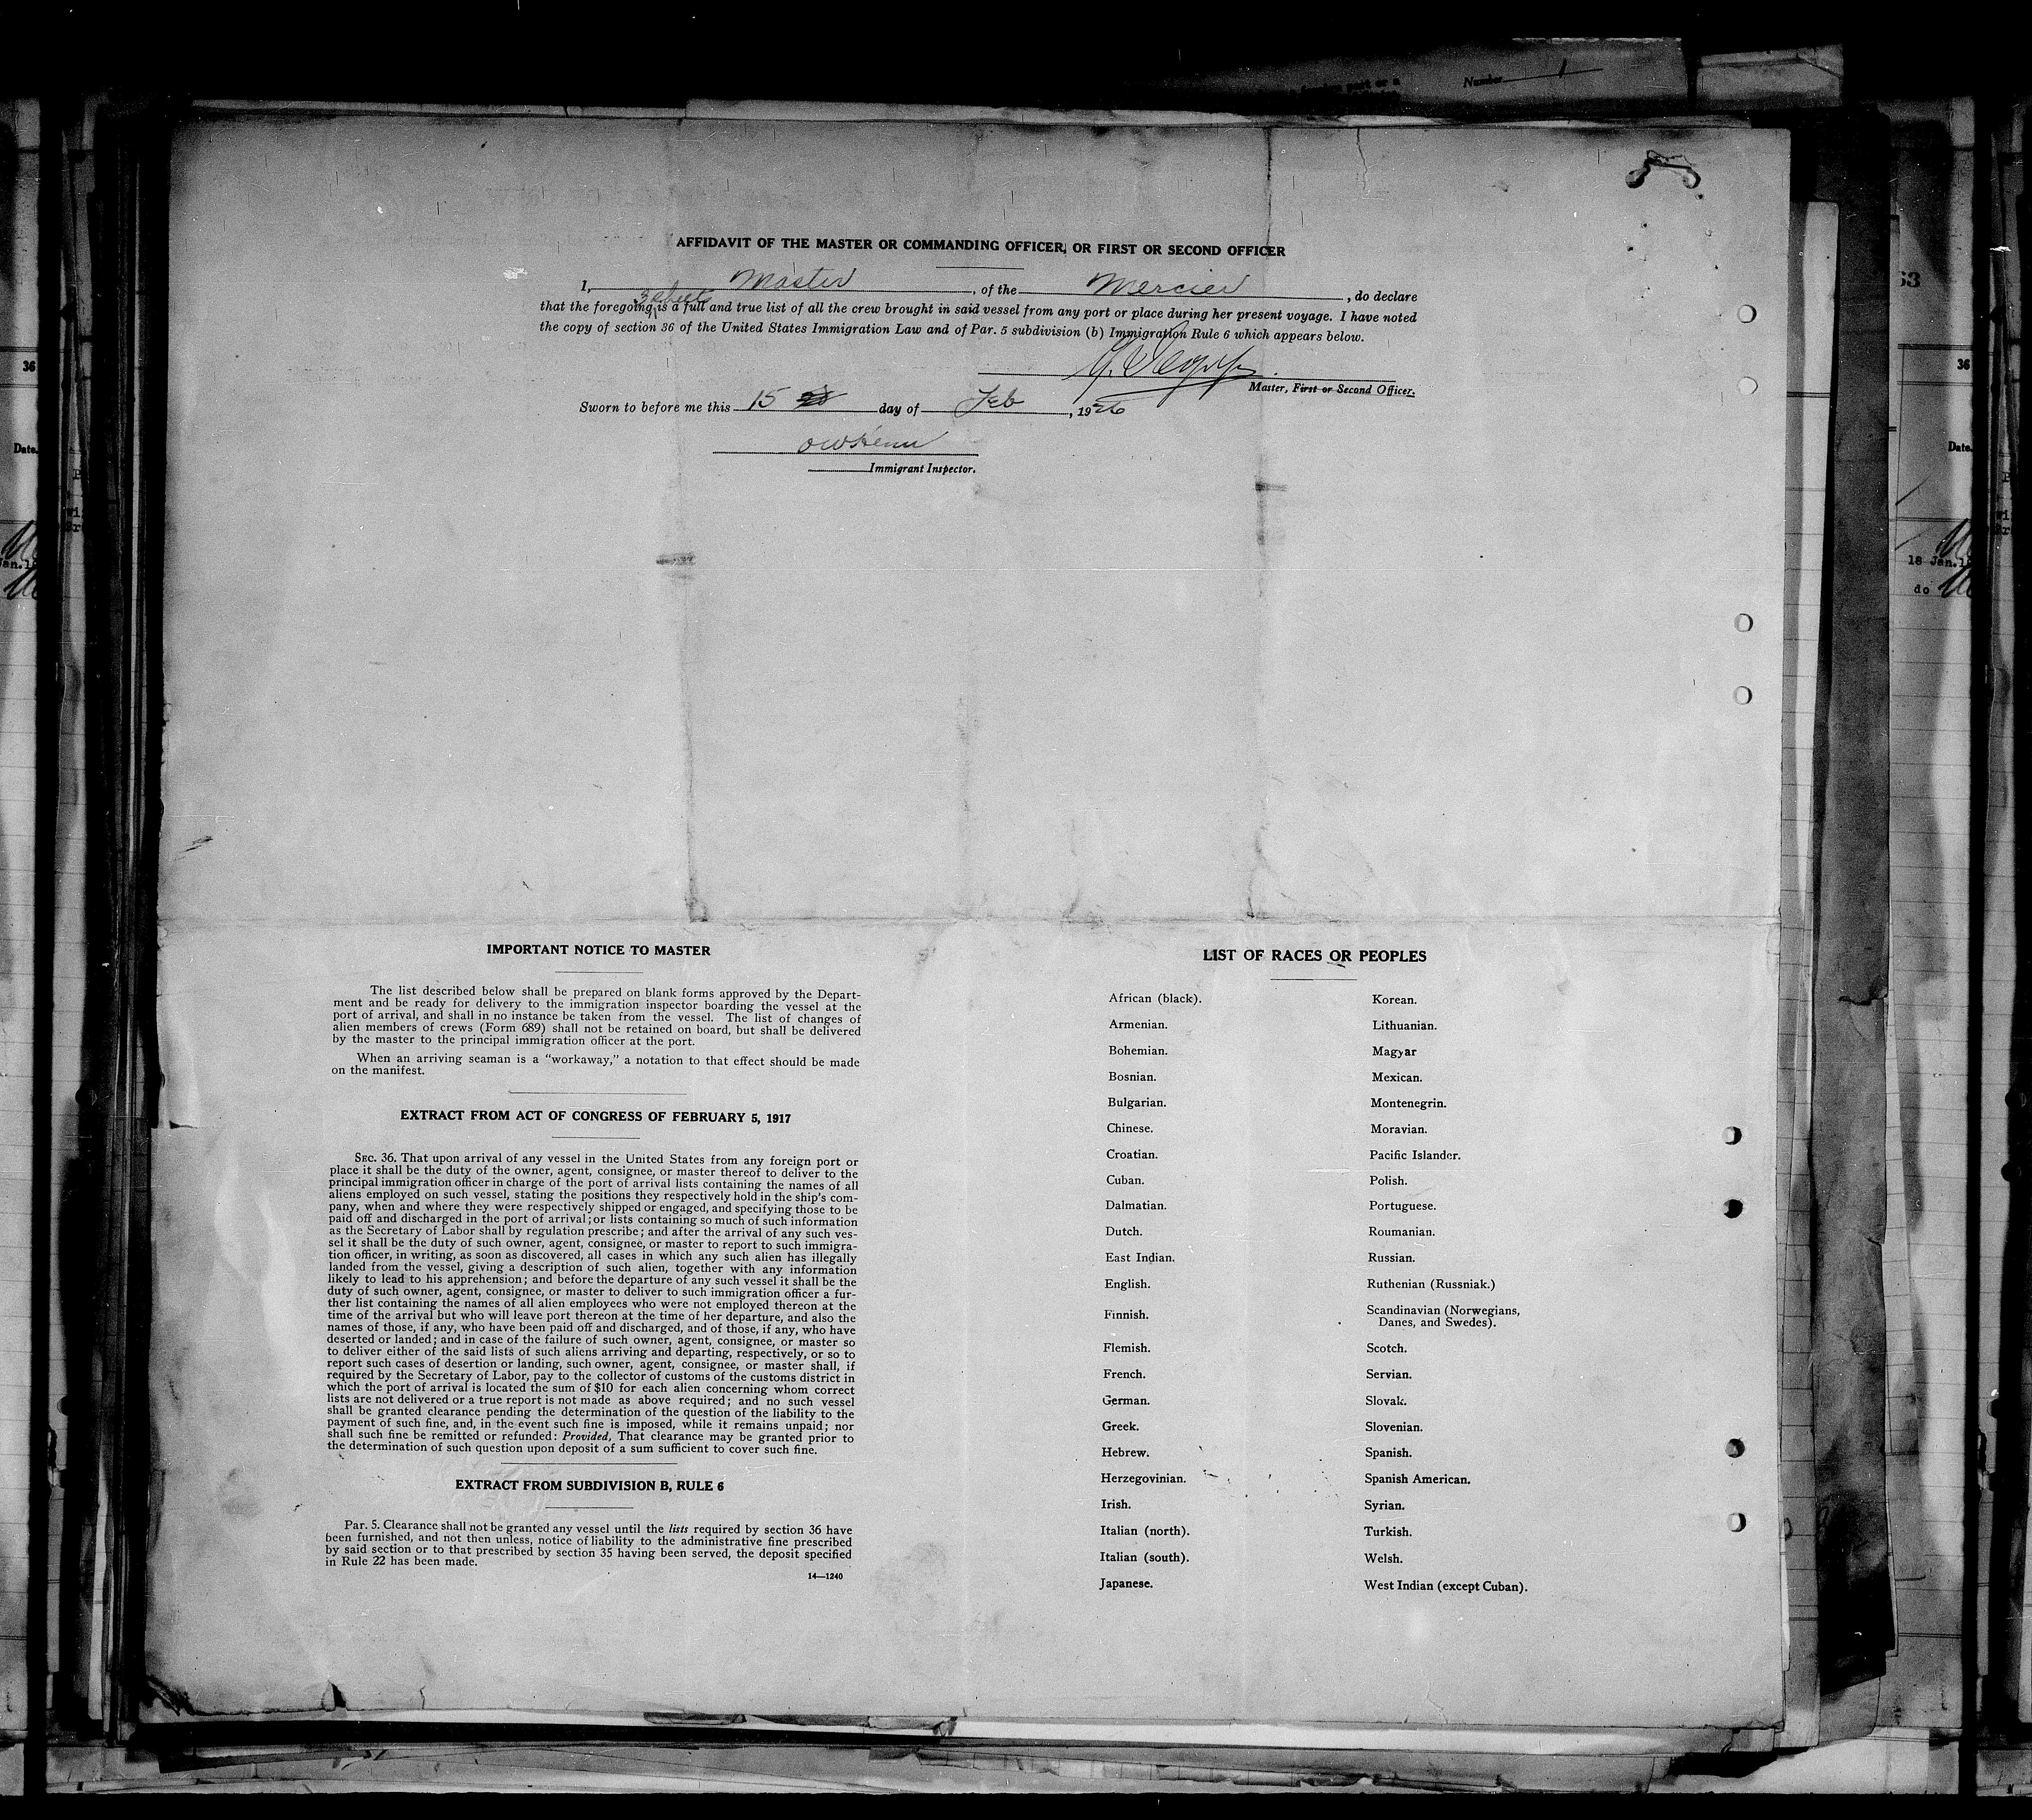 Number 1
AFFIDAVIT OF THE MASTER OR COMMANDING OFFICER, OR FIRST OR SECOND OFFICER
I, Master, of the Mercier, do declare
3 sheets
that the foregoing is a full and true list of all the crew brought in said vessel from any port or place during her present voyage. I have noted
the copy of section 36 of the United States Immigration Law and of Par. 5 subdivision (b) Immigration Rule 6 which appears below.
Master, First or Second Officer.
Sworn to before me this 15 day of Feb, 1926
Immigrant Inspector.
IMPORTANT NOTICE TO MASTER
The list described below shall be prepared on blank forms approved by the Depart-
ment and be ready for delivery to the immigration inspector boarding the vessel at the
port of arrival, and shall in no instance be taken from the vessel. The list of changes of
alien members of crews (Form 689) shall not be retained on board, but shall be delivered
by the master to the principal immigration officer at the port.
When an arriving seaman is a "workaway," a notation to that effect should be made
on the manifest.
EXTRACT FROM ACT OF CONGRESS OF FEBRUARY 5, 1917
SEC. 36. That upon arrival of any vessel in the United States from any foreign port or
place it shall be the duty of the owner, agent, consignee, or master thereof to deliver to the
principal immigration officer in charge of the port of arrival lists containing the names of all
aliens employed on such vessel, stating the positions they respectively hold in the ship's com-
pany, when and where they were respectively shipped or engaged, and specifying those to be
paid off and discharged in the port of arrival; or lists containing so much of such information
as the Secretary of Labor shall by regulation prescribe; and after the arrival of any such ves-
sel it shall be the duty of such owner, agent, consignee, or master to report to such immigra-
tion officer, in writing, as soon as discovered, all cases in which any such alien has illegally
landed from the vessel, giving a description of such alien, together with any information
likely to lead to his apprehension; and before the departure of any such vessel it shall be the
duty of such owner, agent, consignee, or master to deliver to such immigration officer a fur-
ther list containing the names of all alien employees who were not employed thereon at the
time of the arrival but who will leave port thereon at the time of her departure, and also the
names of those, if any, who have been paid off and discharged, and of those, if any, who have
deserted or landed; and in case of the failure of such owner, agent, consignee, or master so
to deliver either of the said lists of such aliens arriving and departing, respectively, or so to
report such cases of desertion or landing, such owner, agent, consignee, or master shall, if
required by the Secretary of Labor, pay to the collector of customs of the customs district in
which the port of arrival is located the sum of $10 for each alien concerning whom correct
lists are not delivered or a true report is not made as above required; and no such vessel
shall be granted clearance pending the determination of the question of the liability to the
payment of such fine, and, in the event such fine is imposed, while it remains unpaid; nor
shall such fine be remitted or refunded: Provided, That clearance may be granted prior to
the determination of such question upon deposit of a sum sufficient to cover such fine.
EXTRACT FROM SUBDIVISION B, RULE 6
Par. 5. Clearance shall not be granted any vessel until the lists required by section 36 have
been furnished, and not then unless, notice of liability to the administrative fine prescribed
by said section or to that prescribed by section 35 having been served, the deposit specified
in Rule 22 has been made.
14—1240
LIST OF RACES OR PEOPLES
African (black).
Armenian.
Bohemian.
Bosnian.
Bulgarian.
Chinese.
Croatian.
Cuban.
Dalmatian.
Dutch.
East Indian.
English.
Finnish.
Flemish.
French.
German.
Greek.
Hebrew.
Herzegovinian.
Irish.
Italian (north).
Italian (south).
Japanese.
Korean.
Lithuanian.
Magyar
Mexican.
Montenegrin.
Moravian.
Pacific Islander.
Polish.
Portuguese.
Roumanian.
Russian.
Ruthenian (Russniak.)
Scandinavian (Norwegians,
Danes, and Swedes).
Scotch.
Servian.
Slovak.
Slovenian.
Spanish.
Spanish American.
Syrian.
Turkish.
Welsh.
West Indian (except Cuban).
36
Date.
18 Jan.
do